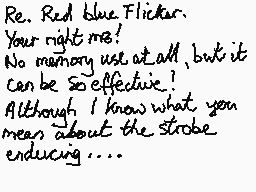 Re. Red blue Flicker.
Your right mrs!
No memory use at all, but it
can be so effective!
Although I know what you
mean about the strobe
enducing ....